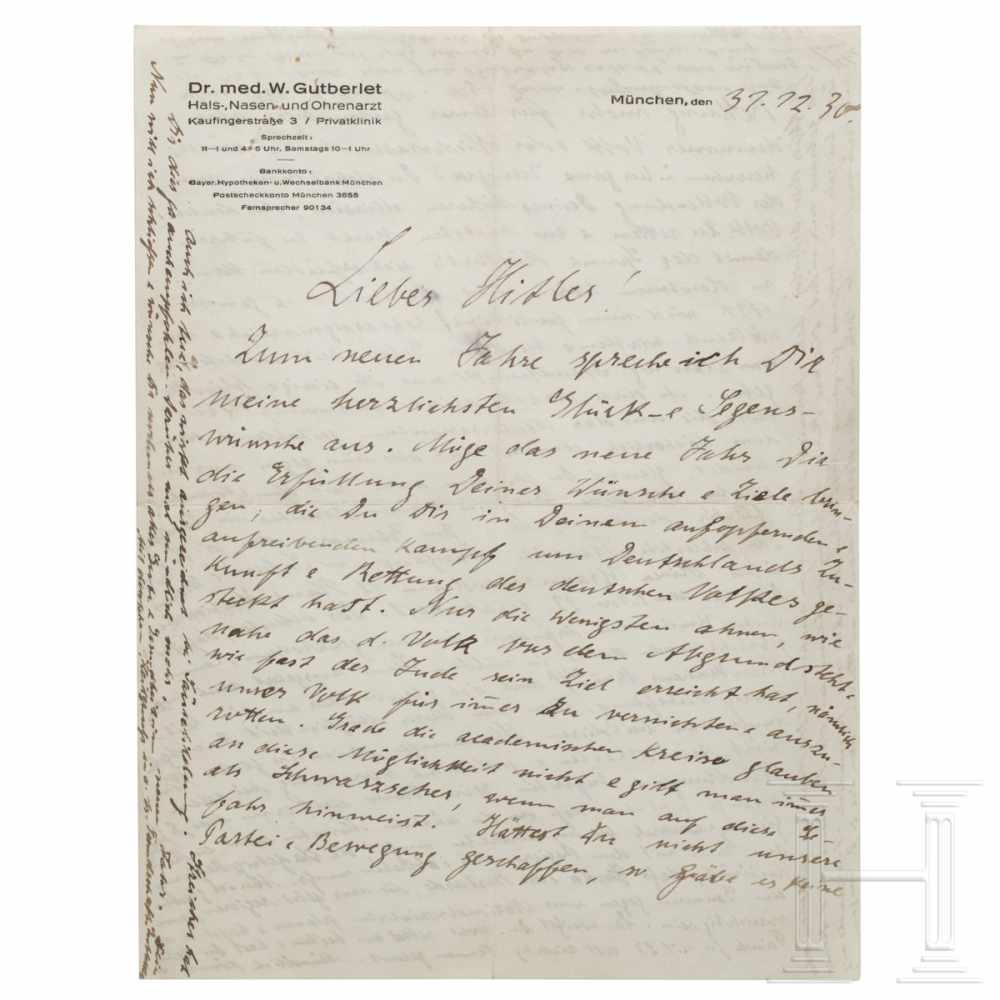 Dr. med. W. Gutberlet
Hals-, Nasen- und Ohrenarzt
Kaufingerstraße 3 / Privatklinik
Sprechzeit:
11—1 und 4-6 Uhr, Samstags 10—1 Uhr
Bankkonto:
Bayer. Hypotheken- u. Wechselbank München
Postscheckkonto München 3655
Fernsprecher 90134
München, den 31.12.30.
Lieber Hitler!
Zum neuen Jahre spreche ich Dir
meine herzlichsten Glück- e Segens-
wünsche aus. Möge das neue Jahr Dir
die Erfüllung Deiner Wünsche e Ziele brin-
gen, die Du Dir in Deinem aufopfernden e
aufreibenden Kampf um Deutschlands Zu-
kunft e Rettung des deutschen Volkes ge-
steckt hast. Nur die Wenigsten ahnen, wie
nahe das d. Volk vor dem Abgrund steht e
wie fast der Jude sein Ziel erreicht hat, nämlich
unser Volk für immer zu vernichten e auszu-
rotten. Grade die academischen Kreise glauben
an diese Möglichkeit nicht e gilt man immer
als Schwarzseher, wenn man auf diese Ge-
fahr hinweist. Hättest Du nicht unsere
Partei e Bewegung geschaffen, so gäbe es keine
Auch ich hier, das nicht
Dir dies
Nun will ich schließen e wünsche Dir nochmals alles Gute e Gesundheit im neuen Jahr. Dein
H